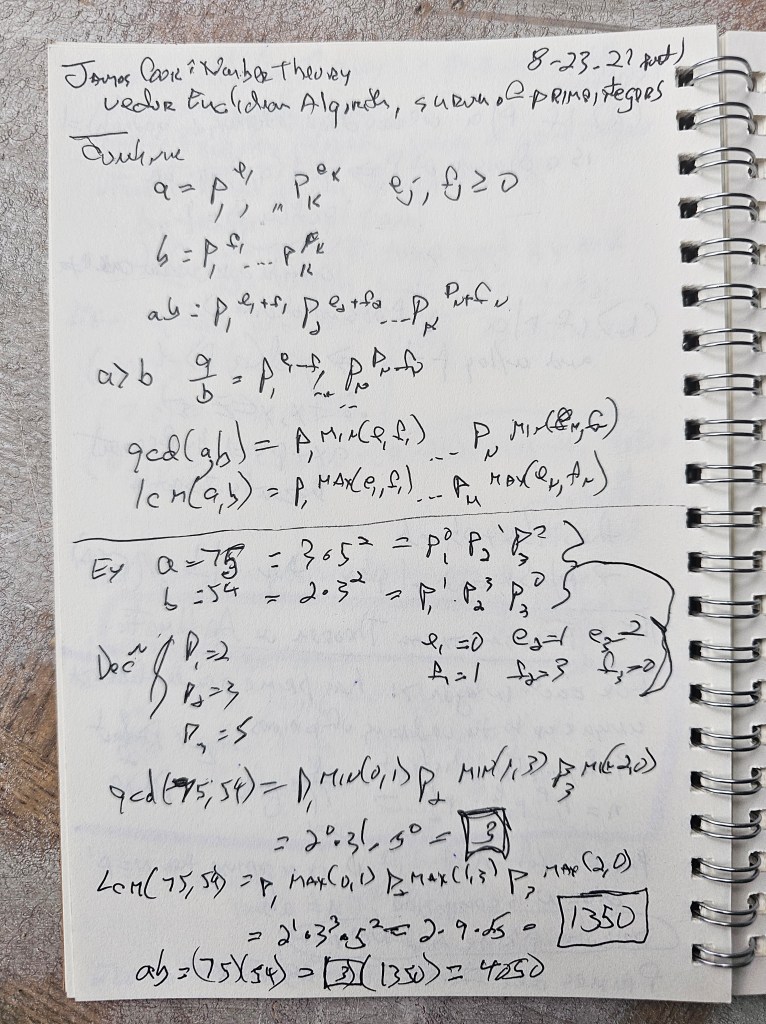 James Cook: Number Theory 8-23-21 part 1
vector Euclidean Algorithm, survey of prime integers
a = p₁^e₁ ,, ,, p_k^e_k eⱼ, fⱼ ≥ 0
b = p₁^f₁ ... p_k^f_k
ab = p₁^e₁+f₁ p₂^e₂+f₂ ... p_k^p_N+f_N
a>b a/b = p₁^e-f₁ ... p_N^p_N-f_N
gcd(a,b) = p₁^MIN(e₁f₁) ... p_N^MIN(e_N,f_N)
lcm(a,b) = p₁^MAX(e₁,f₁) ... p_N^MAX(e_N,f_N)
Ex a = 75 = 3·5² = p₁⁰ p₂¹ p₃² }
b = 54 = 2·3² = p₁¹ p₂³ p₃⁰ }
e₁=0 e₂=1 e₃=2
Decⁿ { p₁=2 f₁=1 f₂=3 f₃=0
p₂=3
p₃=5
gcd(75,54) = p₁^MIN(0,1) p₂^MIN(1,3) p₃^MIN(2,0)
= 2⁰·3¹·5⁰ = 3
Lcm(75,54) = p₁^MAX(0,1) p₂^MAX(1,3) p₃^MAX(2,0)
= 2¹·3³·5² = 2·9·25 = 1350
ab = (75)(54) = 3(1350) = 4050